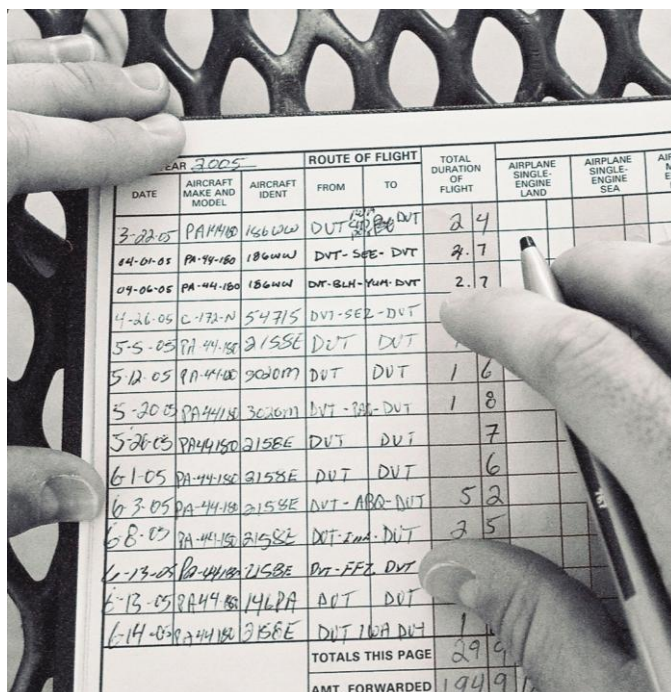 YEAR 2005 ROUTE OF FLIGHT TOTAL DURATION OF FLIGHT AIRPLANE SINGLE-ENGINE LAND AIRPLANE SINGLE-ENGINE SEA
DATE AIRCRAFT MAKE AND MODEL AIRCRAFT IDENT FROM TO
3-22-05 PA44180 186WW DVT DVT 2 4
04-01-05 PA-44-180 186WW DVT-SEE-DVT 2.7
04-06-05 PA-44-180 186WW DVT-BLH-YUM-DVT 2.7
4-26-05 C-172-N 54715 DVT-SEZ-DVT
5-5-05 PA-44-180 2158E DVT DVT
5-12-05 PA-44-180 3020M DVT DVT 1 6
5-20-05 PA44180 3020M DVT-DVT 1 8
5-26-05 PA44180 2158E DVT DVT 7
6-1-05 PA-44-180 2158E DVT DVT 6
6-3-05 PA-44-180 2158E DVT-ABQ-DVT 5 2
6-8-05 PA-44-180 2158E DVT DVT 2 5
6-13-05 PA-44180 2158E DVT-FFZ DVT
6-13-05 PA44180 146PA DVT DVT
6-14-05 PA44180 2158E DVT IWA DVT 1
TOTALS THIS PAGE 29 9
AMT. FORWARDED 194 9